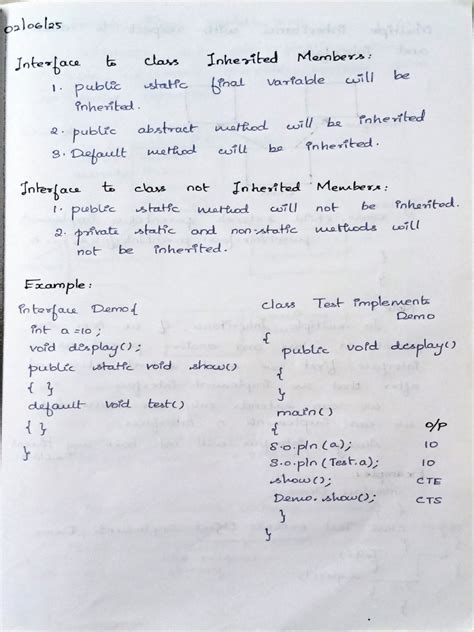 02/06/25
Interface to class Inherited Members:
1. public static final variable will be
inherited.
2. public abstract method will be inherited
3. Default method will be inherited.
Interface to class not Inherited Members:
1. public static method will not be inherited.
2. private static and non-static methods will
not be inherited.
Example:
interface Demo{
int a =10;
void display();
public static void show()
{ }
default void test()
{ }
}
class Test implements
Demo
{
public void display()
{
}
main()
{ O/P
S.o.pln (a); 10
S.o.pln (Test.a); 10
show(); CTE
Demo.show(); CTS
}
}